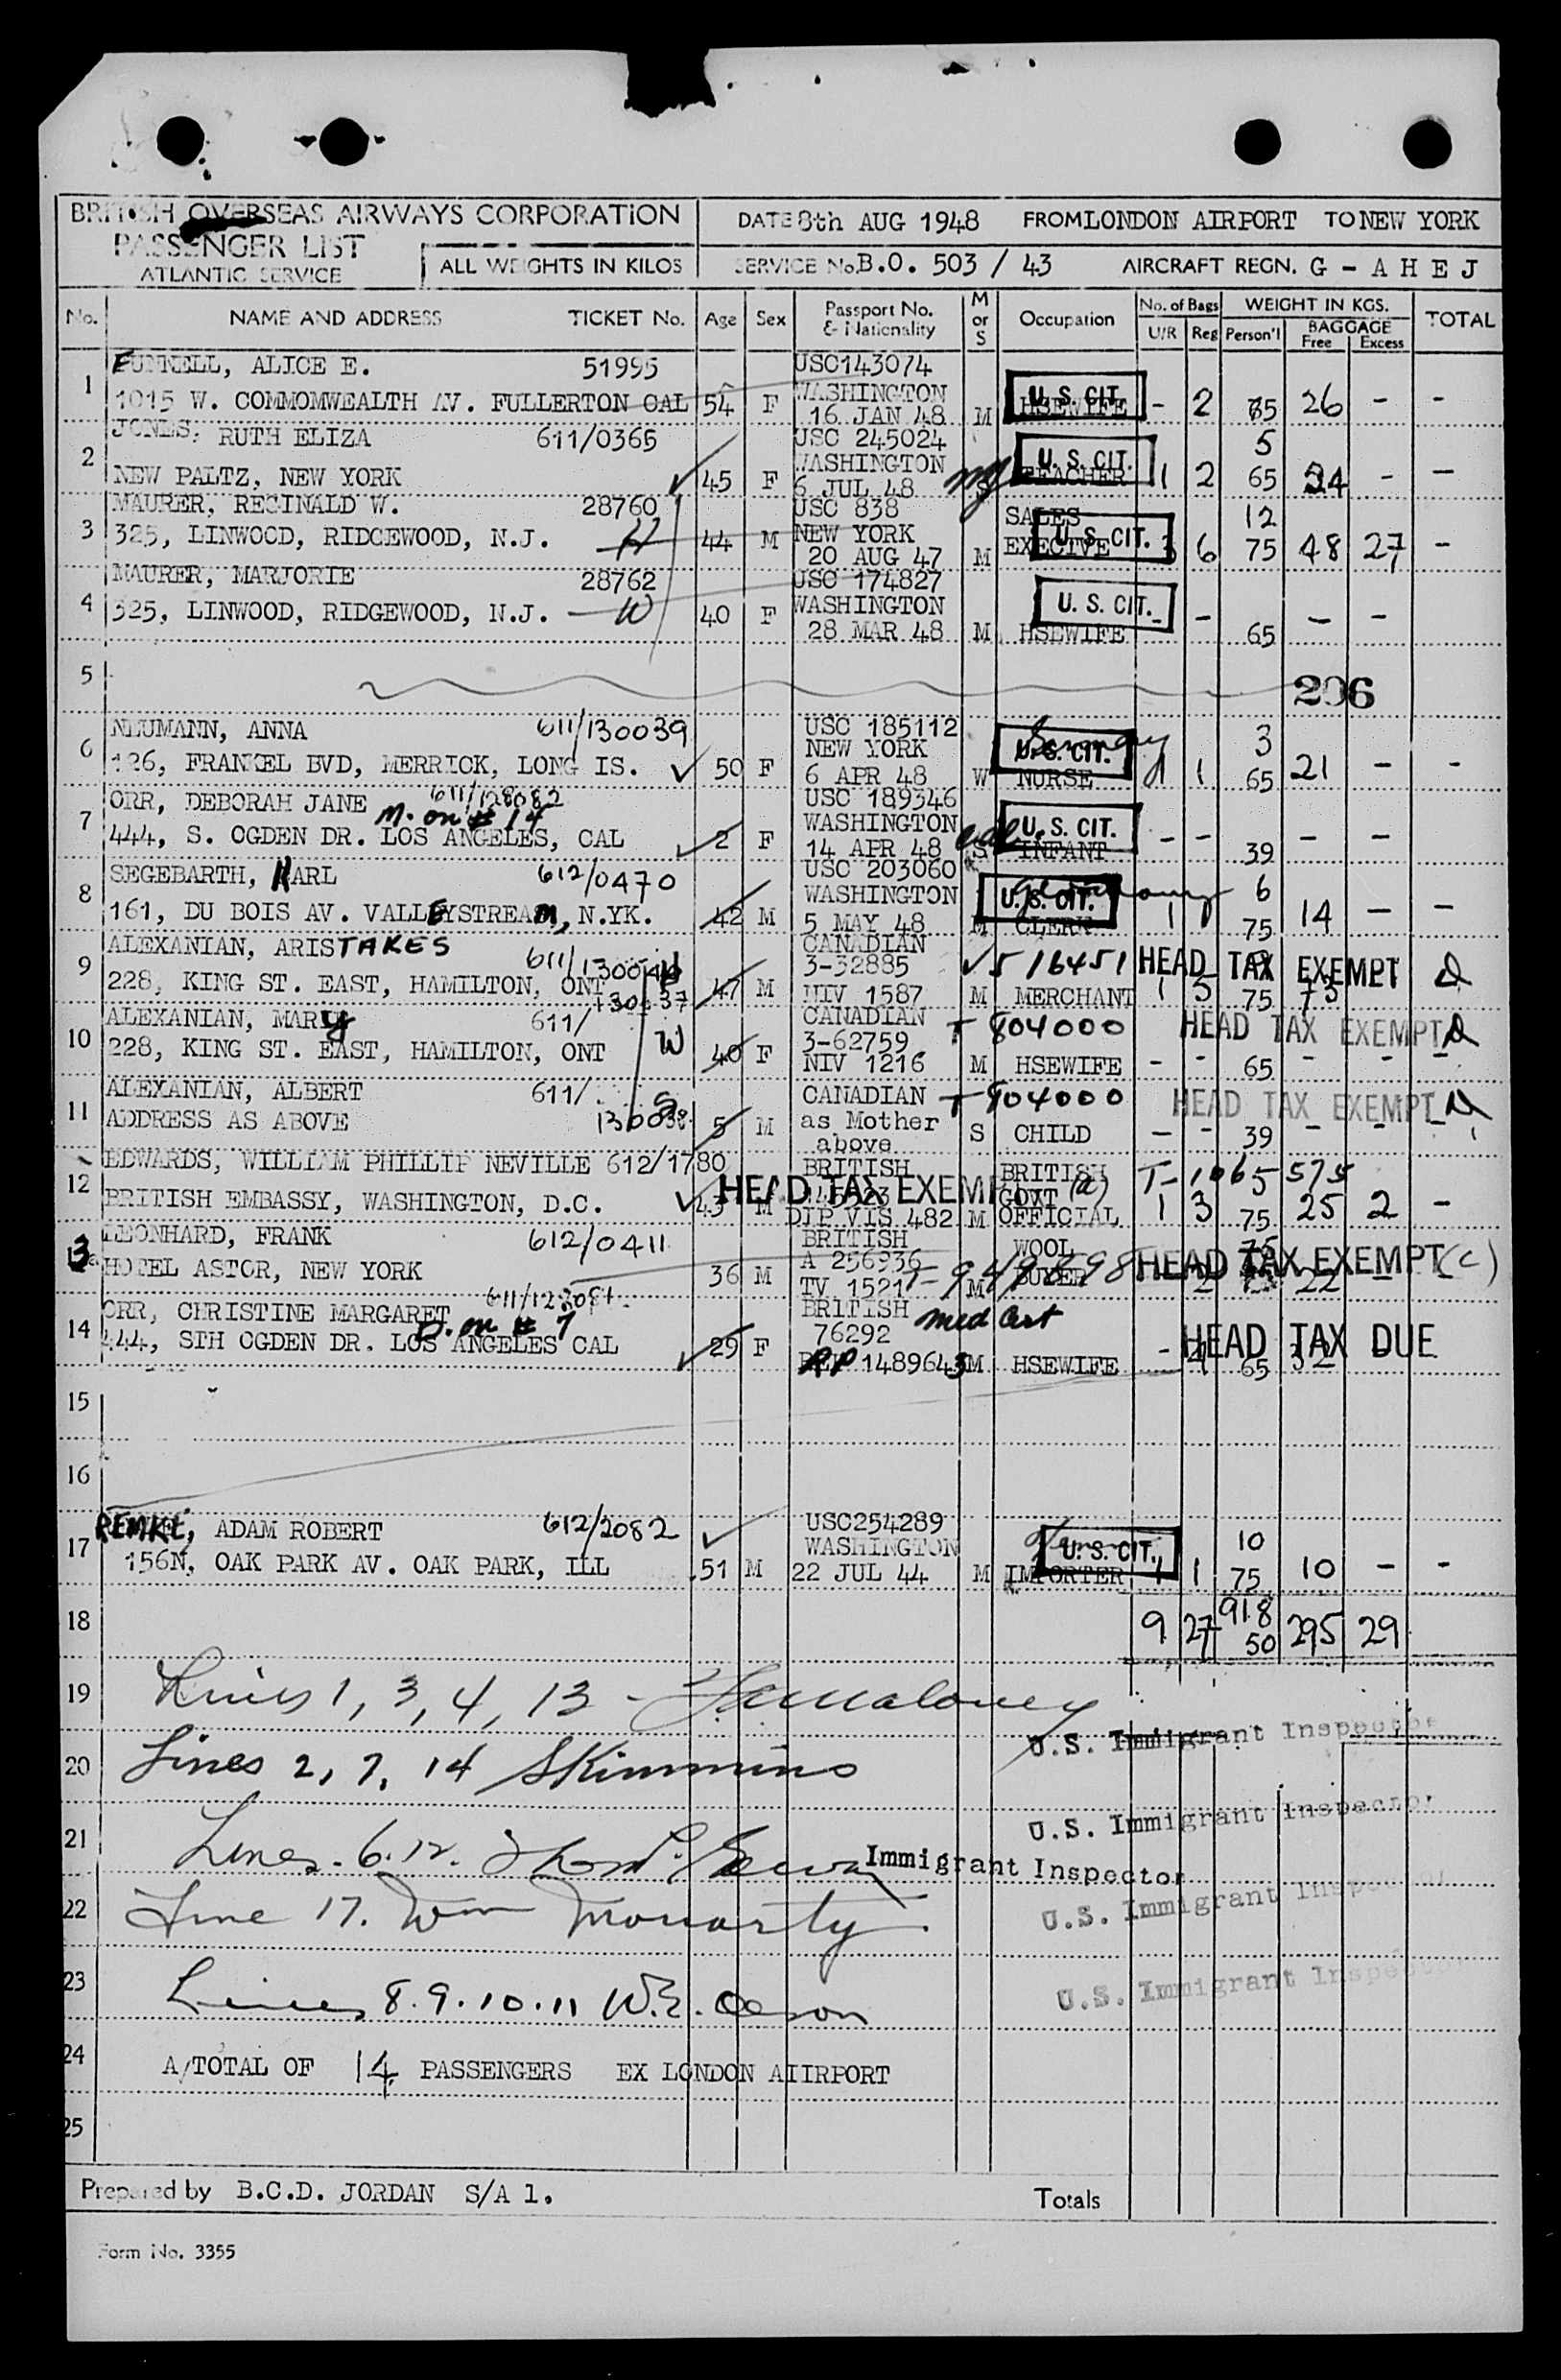 BRITISH OVERSEAS AIRWAYS CORPORATION
PASSENGER LIST
ATLANTIC SERVICE
ALL WEIGHTS IN KILOS
DATE 8th AUG 1948 FROM LONDON AIRPORT TO NEW YORK
SERVICE No. B.O. 503 / 43 AIRCRAFT REGN. G - A H E J
No. NAME AND ADDRESS TICKET No. Age Sex Passport No. & Nationality M or S Occupation No. of Bags U/R Reg WEIGHT IN KGS. Person'l BAGGAGE Free Excess TOTAL
FUNNELL, ALICE E. 51995 USC143074
1 1015 W. COMMOMWEALTH AV. FULLERTON CAL 54 F WASHINGTON 16 JAN 48 M HSEWIFE U. S. CIT. - 2 85 26 - -
JONES, RUTH ELIZA 611/0365 USC 245024 5
2 NEW PALTZ, NEW YORK 45 F WASHINGTON 6 JUL 48 S TEACHER U. S. CIT. 1 2 65 24 - -
MAURER, REGINALD W. 28760 USC 838 SALES 12
3 325, LINWOOD, RIDGEWOOD, N.J. H 44 M NEW YORK 20 AUG 47 M EXECTIVE U. S. CIT. 3 6 75 48 27 -
MAURER, MARJORIE 28762 USC 174827
4 325, LINWOOD, RIDGEWOOD, N.J. W 40 F WASHINGTON 28 MAR 48 M HSEWIFE U. S. CIT. - - 65 - -
5 206
NEUMANN, ANNA 611/130039 USC 185112 Germany 3
6 126, FRANKEL BVD, MERRICK, LONG IS. 50 F NEW YORK 6 APR 48 W NURSE U. S. CIT. 1 1 65 21 - -
ORR, DEBORAH JANE 611/128082 USC 189346
M. on # 14
7 444, S. OGDEN DR. LOS ANGELES, CAL 2 F WASHINGTON 14 APR 48 S INFANT U. S. CIT. - - 39 - -
SEGEBARTH, KARL 612/0470 USC 203060 Germany 6
8 161, DU BOIS AV. VALLEYSTREAM, N.YK. 42 M WASHINGTON 5 MAY 48 M CLERK U. S. CIT. 1 1 75 14 - -
ALEXANIAN, ARISTAKES 611/130040 CANADIAN
9 228, KING ST. EAST, HAMILTON, ONT H 47 M 3-32885 NIV 1587 M MERCHANT 516451 HEAD TAX EXEMPT 1 5 75
ALEXANIAN, MARY 611/ 130037 CANADIAN T 804000 HEAD TAX EXEMPT
10 228, KING ST. EAST, HAMILTON, ONT W 40 F 3-62759 NIV 1216 M HSEWIFE - - 65 - - -
ALEXANIAN, ALBERT 611/ 130038 S CANADIAN T 804000 HEAD TAX EXEMPT
11 ADDRESS AS ABOVE 5 M as Mother above S CHILD - - 39 - - -
EDWARDS, WILLIAM PHILLIP NEVILLE 612/1780 BRITISH BRITISH T-1065575
12 BRITISH EMBASSY, WASHINGTON, D.C. 43 M HEAD TAX EXEMPT (a) DIP VIS 482 M GOVT OFFICIAL 1 3 75 25 2 -
LEONHARD, FRANK 612/0411 BRITISH WOOL
13 HOTEL ASTOR, NEW YORK 36 M A 256936 TV 1521 M BUYER HEAD TAX EXEMPT (c) 2 22 - -
ORR, CHRISTINE MARGARET BRITISH med Cert
D. on # 7
14 444, STH OGDEN DR. LOS ANGELES CAL 29 F 76292 RP 1489643 M HSEWIFE HEAD TAX DUE - 4 65 32 -
15
16
REMKE, ADAM ROBERT 612/2082 USC254289 10
17 156N, OAK PARK AV. OAK PARK, ILL 51 M WASHINGTON 22 JUL 44 M IMPORTER U. S. CIT. 1 1 75 10 - -
18 9 27 918 50 295 29
19 Lines 1, 3, 4, 13 - Maloney
U.S. Immigrant Inspector
20 Lines 2, 7, 14 Skimmins
U.S. Immigrant Inspector
21 Lines. 6. 12. Immigrant Inspector
22 Line 17. Wm Moriarty
U.S. Immigrant Inspector
23 Lines 8. 9. 10. 11 W.E. Oeson
U.S. Immigrant Inspector
24 A TOTAL OF 14 PASSENGERS EX LONDON AIIRPORT
25
Prepared by B.C.D. JORDAN S/A 1. Totals
Form No. 3355